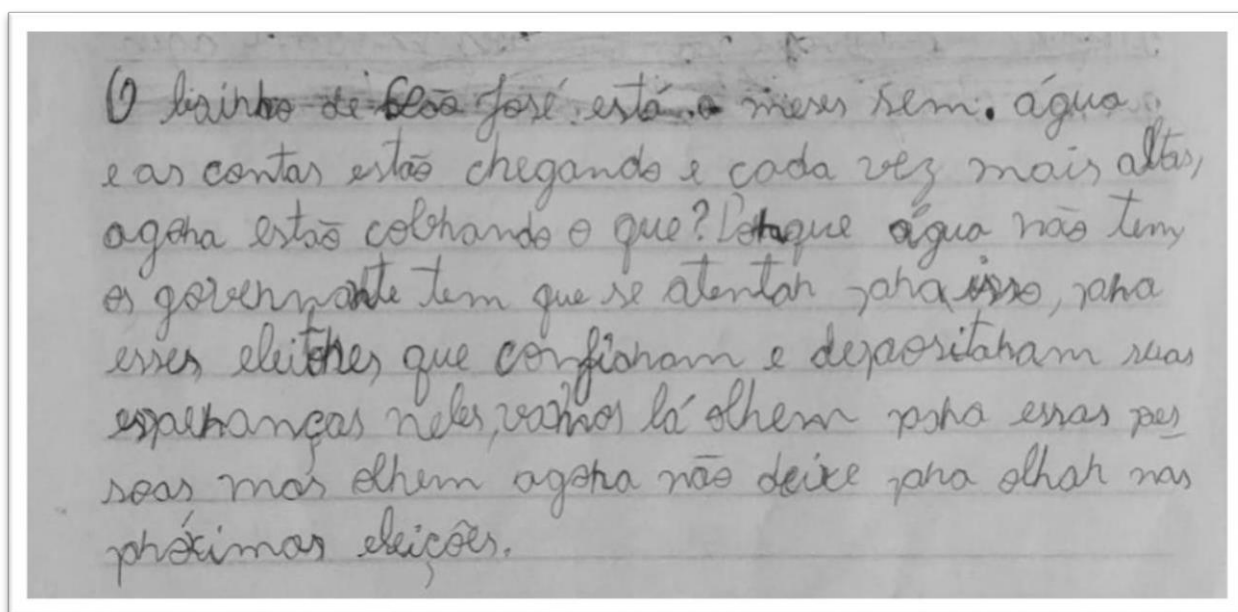 O bairro de São José está a meses sem. água
e as contas estão chegando e cada vez mais altas,
agora estão cobrando o que? Porque água não tem,
os governante tem que se atentar para isso, para
esses eleitores que confiaram e depositaram suas
esperanças neles, vamos lá olhem para essas pes
soas mas olhem agora não deixe para olhar nas
próximas eleições.